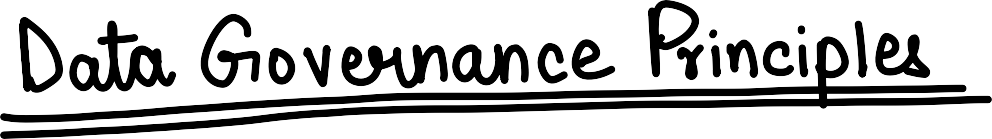 Data Governance Principles